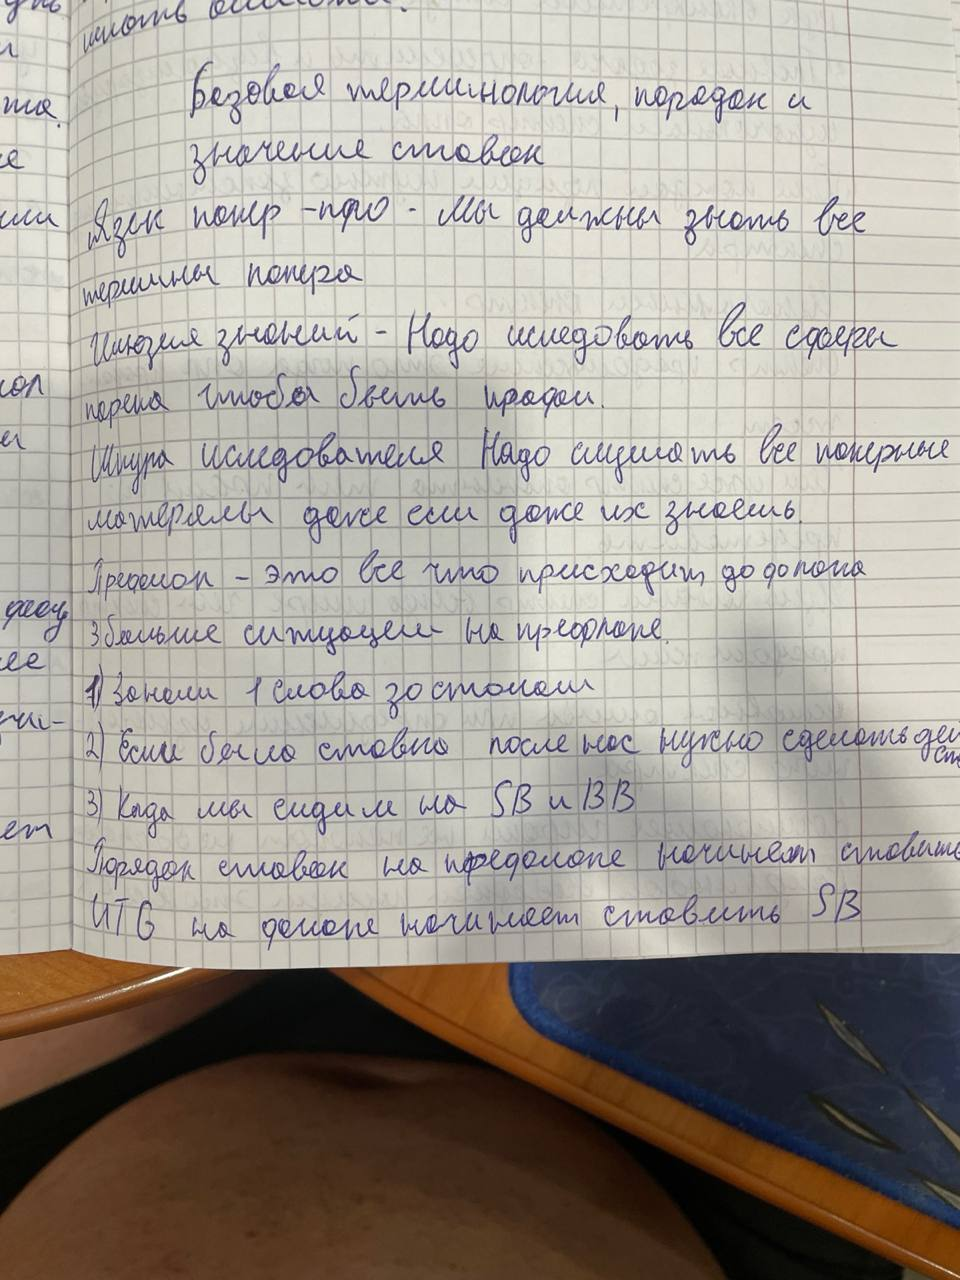 Базовая терминология, порядок и
значение ставок
Язык покр-про - Мы должны знать все
термины покера
Илюзия знаний - Надо иследовать все сферы
чтобы быть
Шкура иследователя Надо слушать все покерные
матерялы даже если даже их знаешь.
Префлоп - это все что присходит до флопа
3 больше ситуацем на префлопе.
1) Заняли 1 слова за столом
2) Если было ставка после нас нужно сделать дей
ст
3) Када мы сидим на SB и BB
Порядок ставок на префлопе начинает ставить
UTG на флопе начинает ставить SB